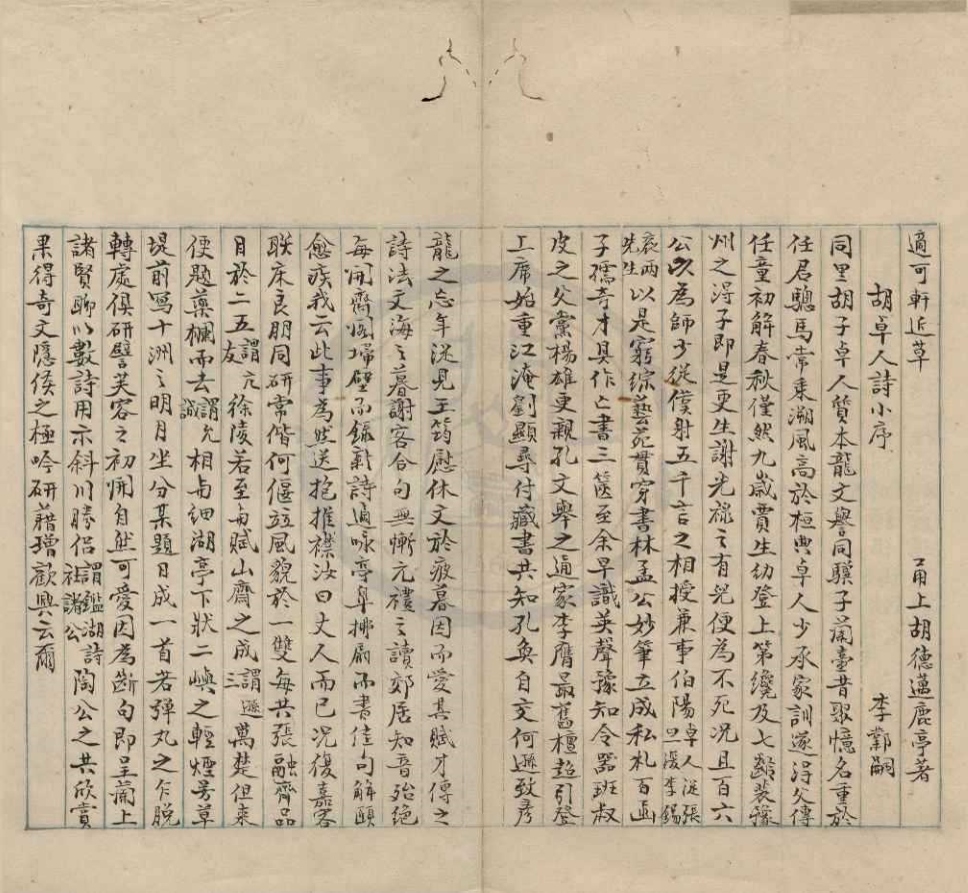 適可軒近草　甬上胡德邁鹿亭著
胡卓人詩小序　李鄴嗣
同里胡子卓人質本龍文譽同驥子蘭臺昔聚憶名重於
任君驄馬常乘溯風高於桓典卓人少承家訓遂得父傳
任童初解春秋僅然九歲賈生幼登上第纔及七齡裴豫
州之得子即是更生謝光祿之有兒便為不死況且百六
公以為師少從僕射五千言之相授兼事伯陽卓人從張旦復李錫
袞兩先生以是窮綜藝苑貫穿書林孟公妙筆立成私札百函
子孺奇才具作亡書三篋至余早識英聲豫知令器班叔
皮之父黨楊雄更親孔文舉之通家李膺最舊檀超引登
上席始重江淹劉顯尋付藏書共知孔奐自交何遜致彥
龍之忘年從見王筠慰休文於疲暮因而愛其賦才傳之
詩法文海之暮謝客合句無慚元禮之讀郊居知音殆絕
每開齋閣埽壁而錄新詩過咏亭皐挪扇而書佳句解頤
愈疾我云此事為然送抱推襟汝曰丈人而已況復嘉客
聯床良朋同研常偕何偃竝風貌於一雙每共張融齊品
目於二五謂亢友徐陵若至each賦山齋之成謂遜三萬楚但來
便題藥欄而去謂允誠相與細湖亭下狀二嶼之輕煙芳草
堤前寫十洲之明月坐分某題日成一首若彈丸之乍脫
轉處俱研譬芙容之初開自然可愛因為斷句即呈蘭上
諸賢聊以數詩用示斜川勝侶謂鑑湖詩社諸公陶公之共欣賞
果得奇文隱侯之極吟研藉增歡興云爾